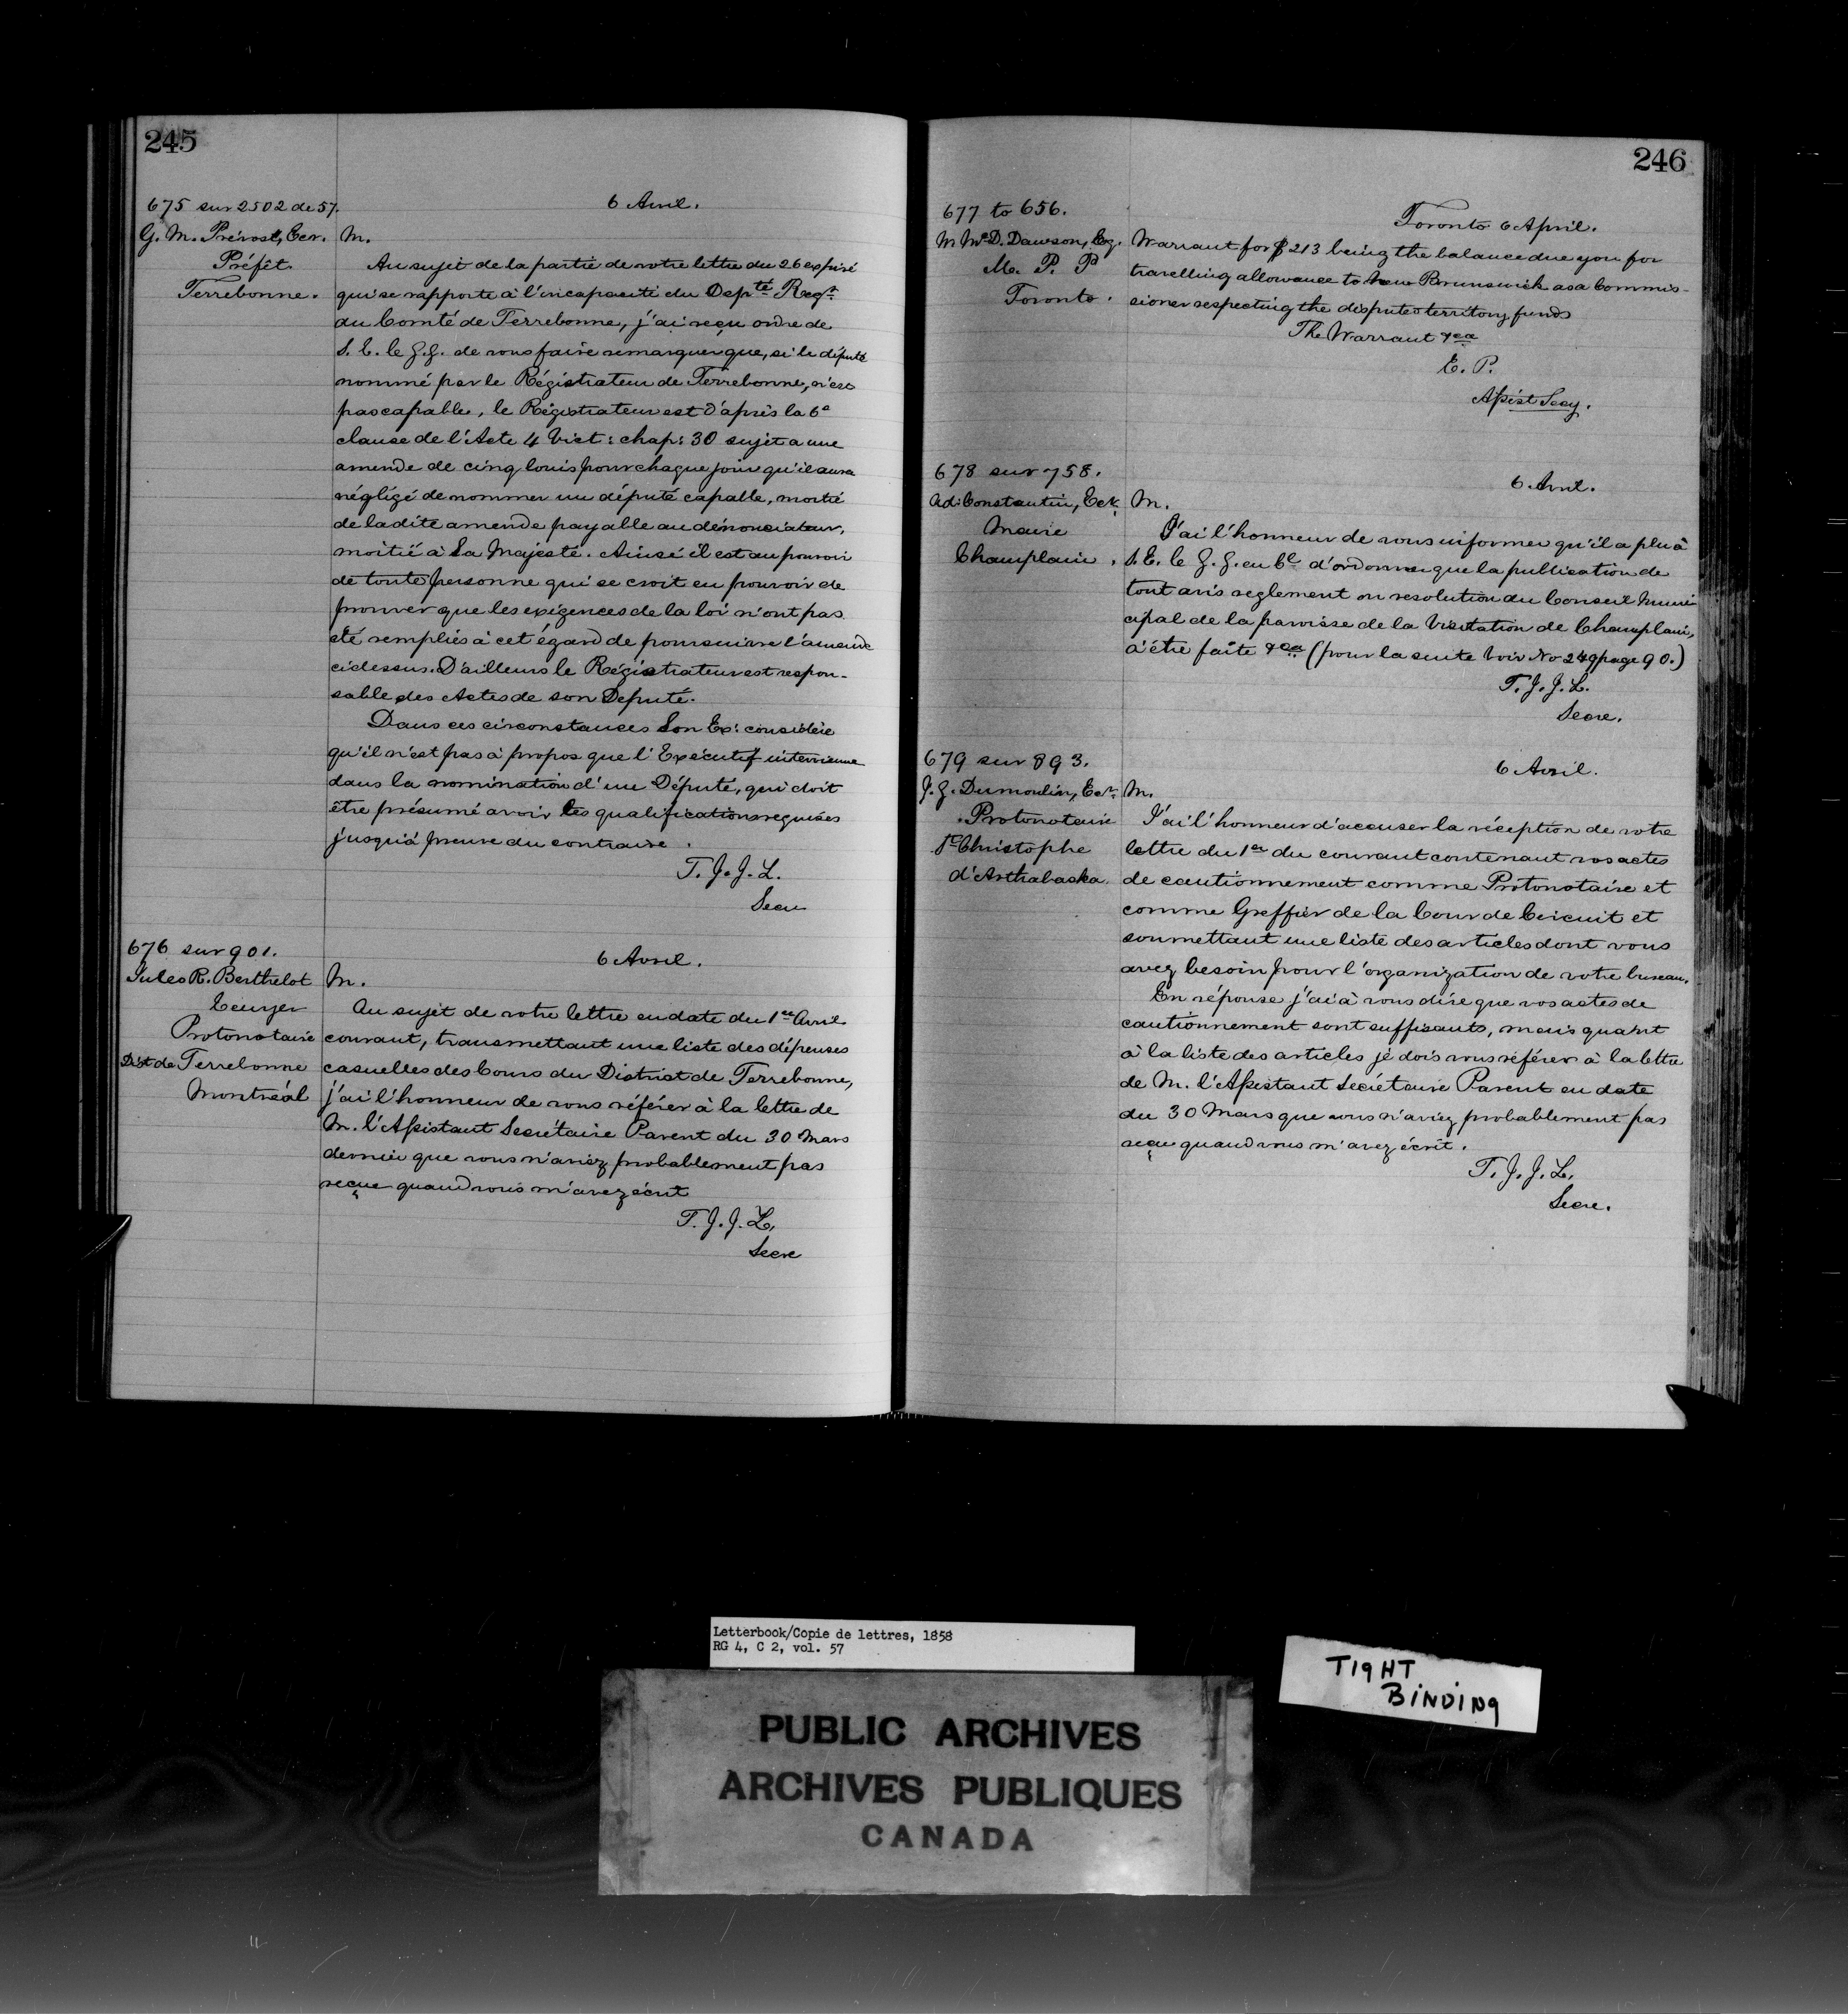 245
675 sur 2502 de 57.
G. M. Prévost, Ecr.
Préfêt
Terrebonne.
6 Avril.
M.
Au sujet de la partie de votre lettre du 26 exprisé
qui se rapporte à l'incapacité du Depté Regr
du Comté de Terrebonne, j'ai reçu ordre de
S. E. le G. G. de vous faire remarquer que, si le député
nommé par le Régistrateur de Terrebonne, n'est
pas capable, le Régistrateur est d'après la 6e
clause de l'Acte 4 Vict: chap: 30 sujet a une
amende de cinq louis pour chaque jour qu'il aura
négligé de nommer un député capable, moitié
de ladite amende payable au dénonciateur,
moitié à Sa Majesté. Ainsi il est au pouvoir
de toute personne qui se croit en pouvoir de
prouver que les exigences de la loi n'ont pas
été remplies à cet égard de poursuivre l'amende
cidessus. D'ailleurs le Régistrateur est respon-
sable des Actes de son Deputé.
Dans ces circonstances Son Ex: considère
qu'il n'est pas à propos que l'Exécutif intervienne
dans la nomination d'un Député, qui doit
être présumé avoir les qualifications requises
jusqu'à preuve du contraire.
T. J. J. L.
Secre
676 sur 901.
Jules R. Berthelot
Ecuyer
Protonotaire
Dist de Terrebonne
Montréal
6 Avril.
M.
Au sujet de votre lettre en date du 1er Avril
courant, transmettant une liste des dépenses
casuelles des Cours du District de Terrebonne,
j'ai l'honneur de vous référer à la lettre de
M. l'Assistant Secrétaire Parent du 30 Mars
dernier que vous n'aviez probablement pas
reçue quand vous m'avez écrit
T. J. J. L,
Secre
246
677 to 656.
M Wm D. Dawson, Esq.
M. P. P
Toronto.
Toronto 6 April.
Warrant for $213 being the balance due you for
travelling allowance to New Brunswick as a Commis-
sioner respecting the disputed territory funds
The Warrant &ca
E. P.
Assist Secy.
678 sur 758.
Ad: Constantin, Ecr.
Maire
Champlain.
6 Avril.
M.
J'ai l'honneur de vous informer qu'il a plu à
S. E. le G. G. en Cl d'ordonner que la publication de
tout avis reglement ou resolution du Conseil Muni-
cipal de la paroisse de la Visitation de Champlain,
à être faite &ca (pour la suite Voir No 249 page 90.)
T. J. J. L.
Secre.
679 sur 893.
J. G. Dumoulin, Ecr.
Protonotaire
St Christophe
d'Arthabaska.
6 Avril.
M.
J'ai l'honneur d'accuser la réception de votre
lettre du 1er du courant contenant vos actes
de cautionnement comme Protonotaire et
comme Greffier de la Cour de Circuit et
soumettant une liste des articles dont vous
avez besoin pour l'organization de votre bureau.
En réponse j'ai à vous dire que vos actes de
cautionnement sont suffisants, mais quant
à la liste des articles je dois vous référer à la lettre
de M. l'Assistant Secrétaire Parent en date
du 30 Mars que vous n'aviez probablement pas
reçue quand vous m'avez écrit.
T. J. J. L,
Secre.
Letterbook/Copie de lettres, 1858
RG 4, C 2, vol. 57
TIGHT
BINDING
PUBLIC ARCHIVES
ARCHIVES PUBLIQUES
CANADA